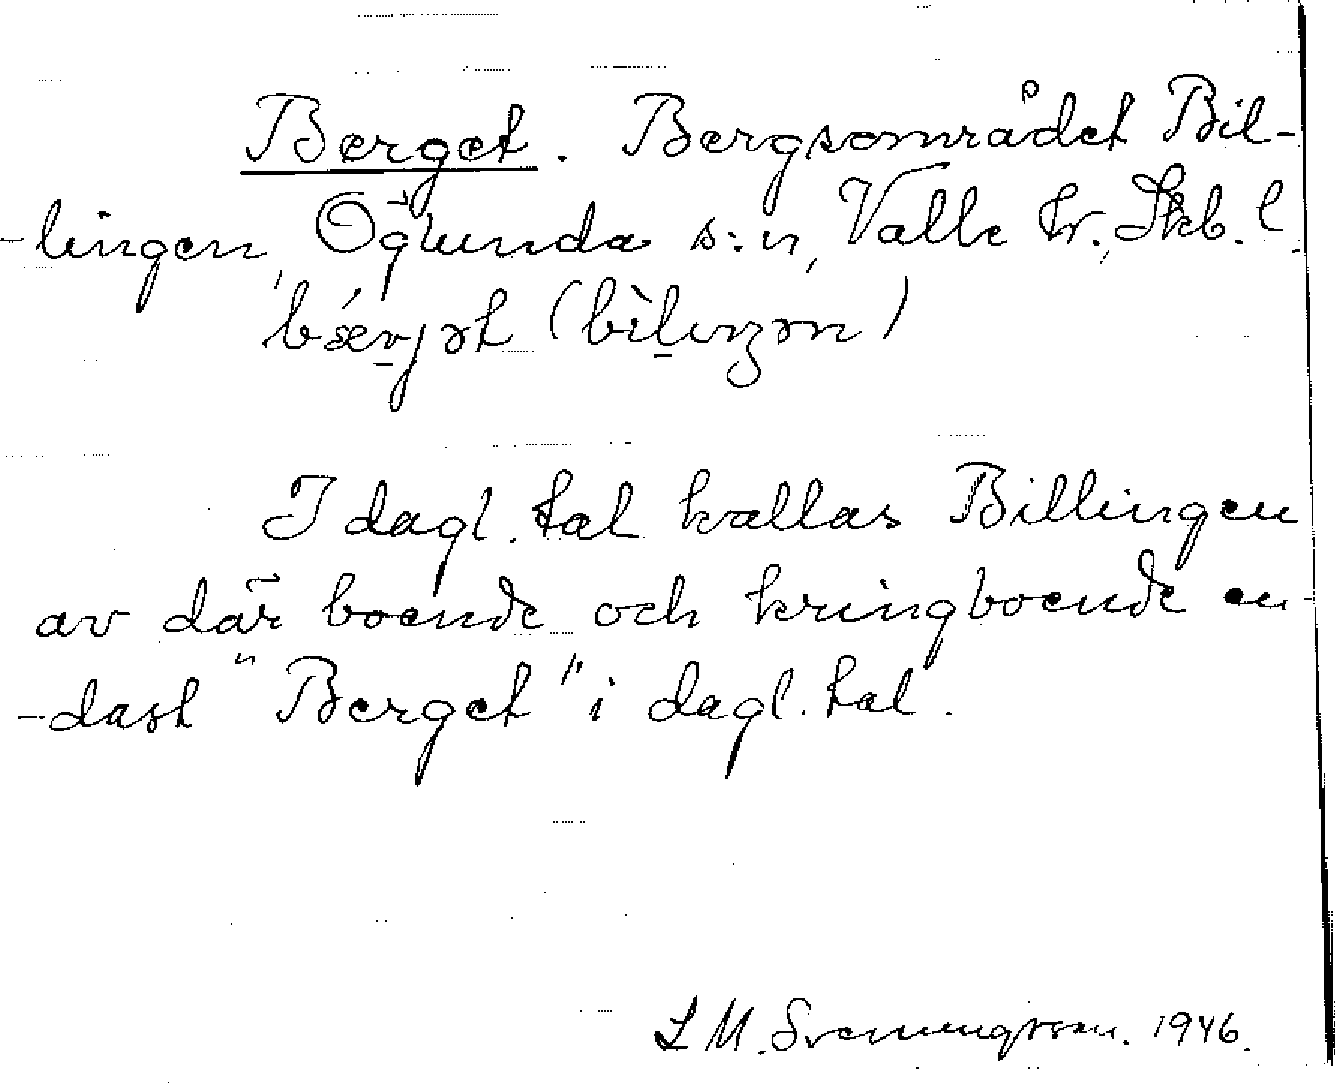 Berget. Bergsområdet Bil-
-lingen, Öglunda s:n, Valle hr., Skb. l.
(
)
I dagl. tal kallas Billingen
av där boende och kringboende en-
-dast "Berget" i dagl. tal.
L M. Svenningsson. 1946.